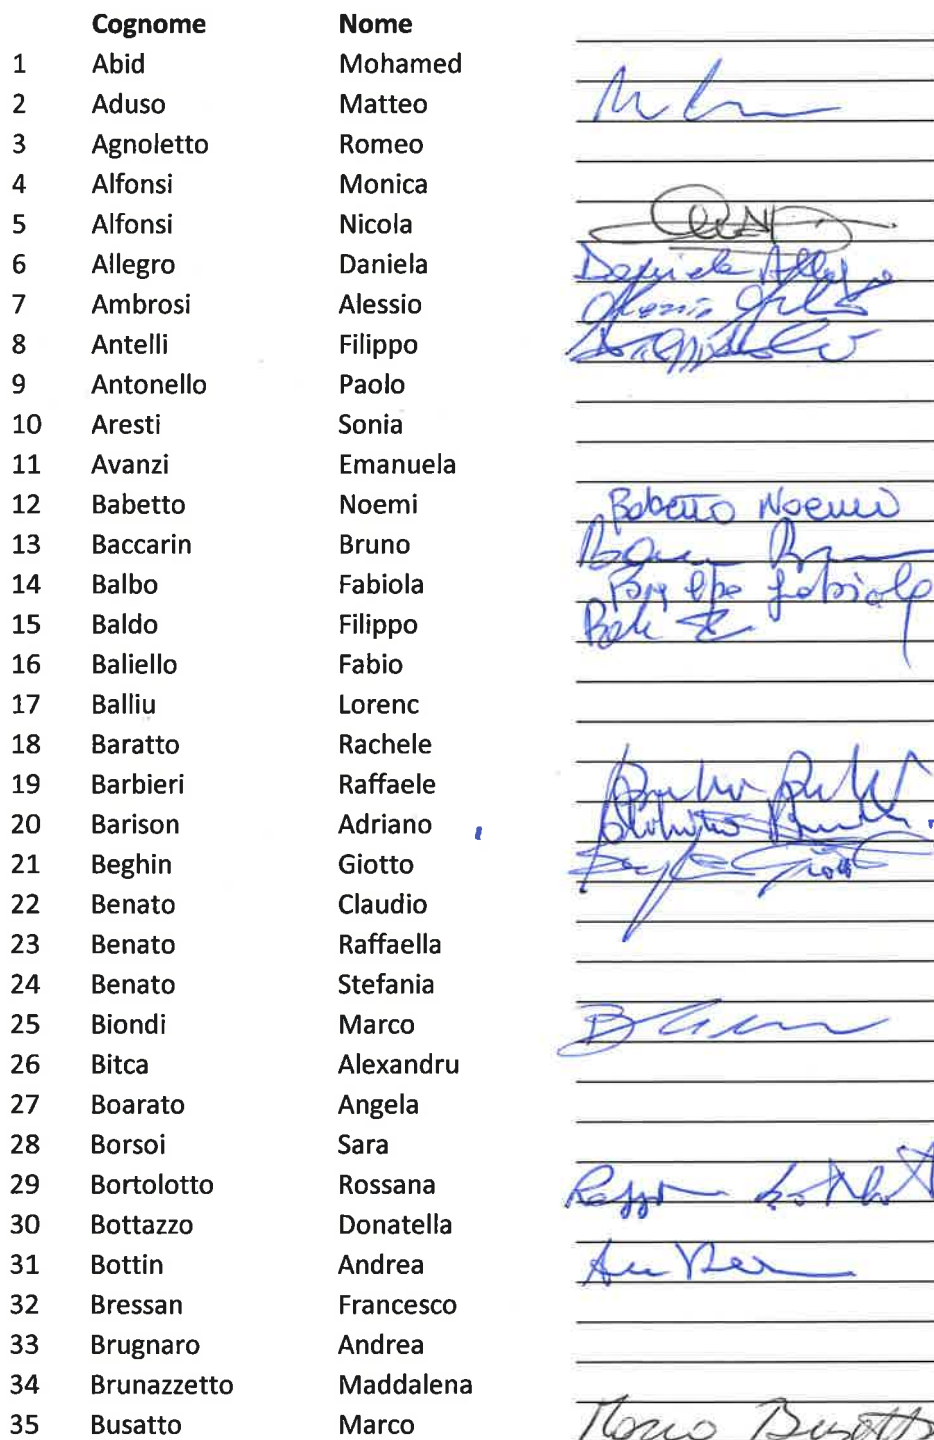 Cognome Nome
1 Abid Mohamed
2 Aduso Matteo
3 Agnoletto Romeo
4 Alfonsi Monica
5 Alfonsi Nicola
6 Allegro Daniela Daniela Allegro
7 Ambrosi Alessio
8 Antelli Filippo
9 Antonello Paolo
10 Aresti Sonia
11 Avanzi Emanuela
12 Babetto Noemi Babetto Noemi
13 Baccarin Bruno
14 Balbo Fabiola Fabiola
15 Baldo Filippo
16 Baliello Fabio
17 Balliu Lorenc
18 Baratto Rachele
19 Barbieri Raffaele
20 Barison Adriano
21 Beghin Giotto Giotto
22 Benato Claudio
23 Benato Raffaella
24 Benato Stefania
25 Biondi Marco
26 Bitca Alexandru
27 Boarato Angela
28 Borsoi Sara
29 Bortolotto Rossana
30 Bottazzo Donatella
31 Bottin Andrea
32 Bressan Francesco
33 Brugnaro Andrea
34 Brunazzetto Maddalena
35 Busatto Marco Marco Busatto